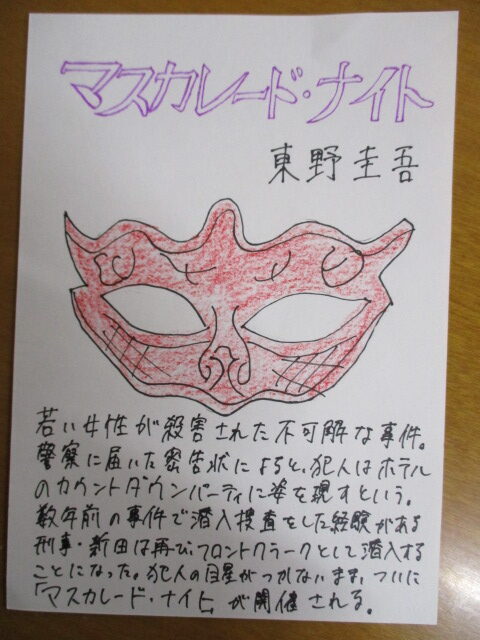 マスカレード・ナイト
東野圭吾
若い女性が殺害された不可解な事件。
警察に届いた密告状によると、犯人はホテル
のカウントダウンパーティに姿を現すという。
数年前の事件で潜入捜査をした経験がある
刑事・新田は再び、フロントクラークとして潜入する
ことになった。犯人の目星がつかないまま、ついに
「マスカレード・ナイト」が開催される。